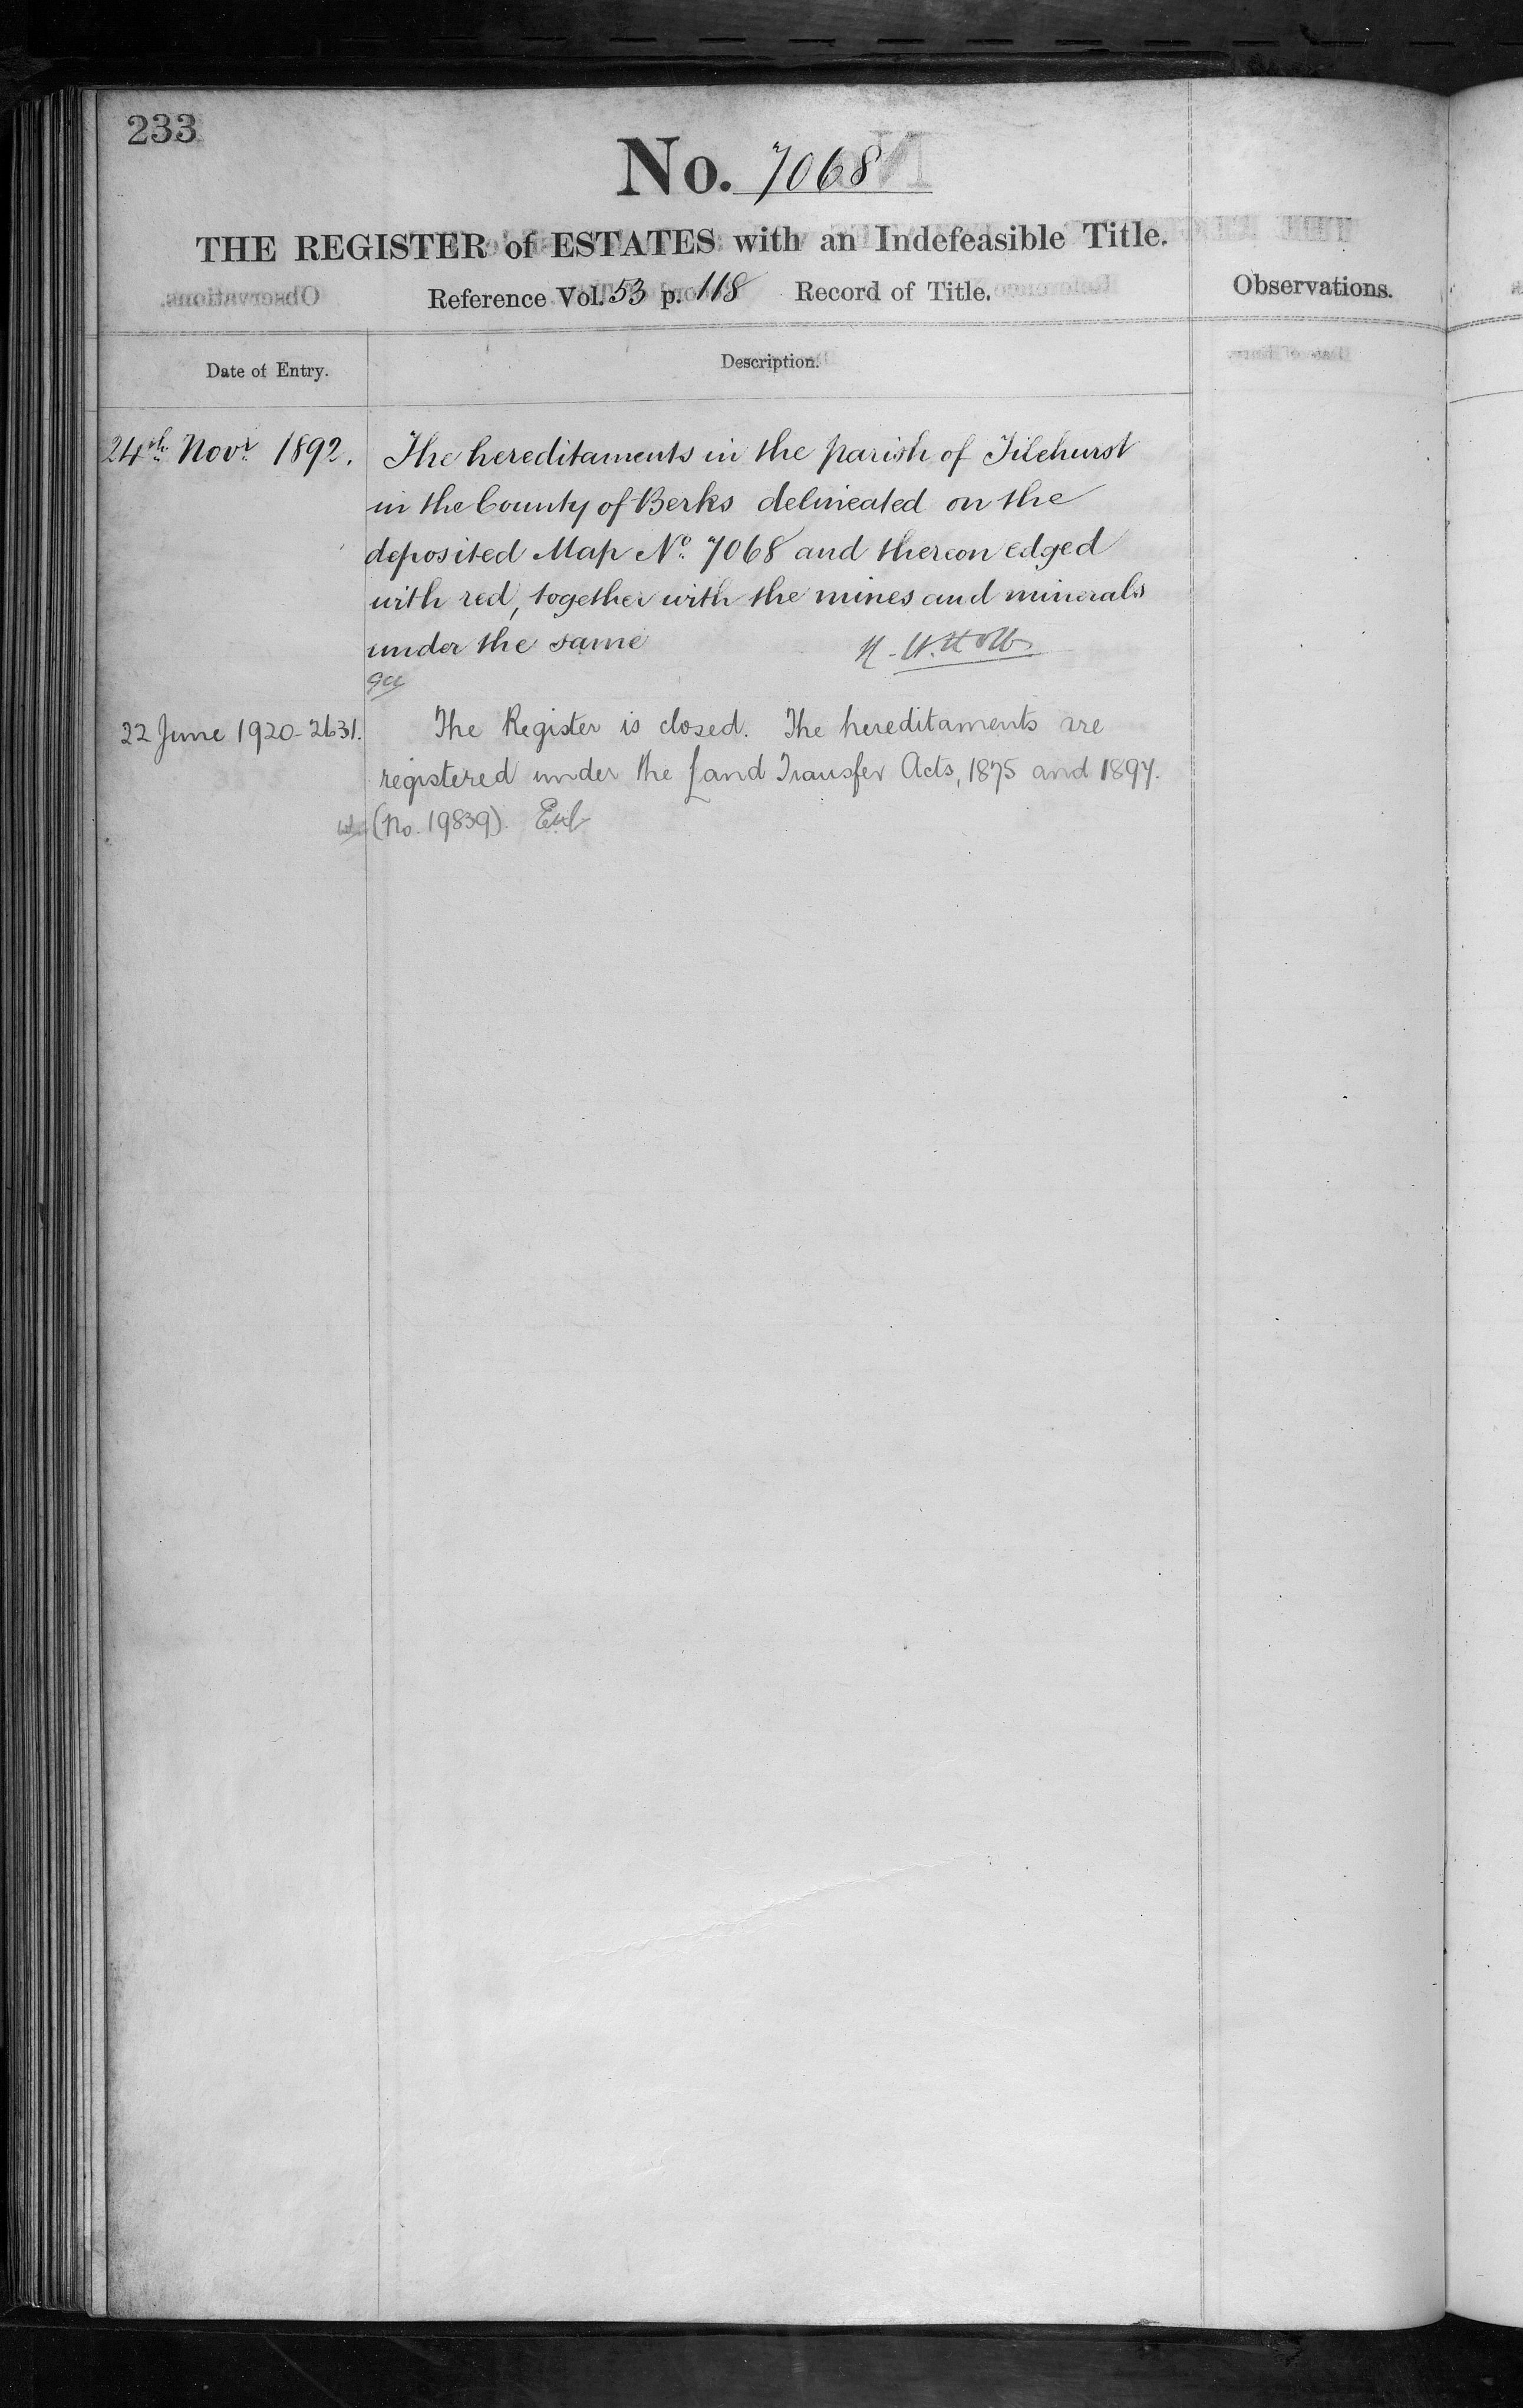 233
No. 7068
THE REGISTER of ESTATES with an Indefeasible Title.
Reference Vol. 53 p. 118 Record of Title.
Observations.
Date of Entry.
Description.
24th Novr 1892. The hereditaments in the parish of Tilehurst
in the County of Berks delineated on the
deposited Map No. 7068 and thereon edged
with red, together with the mines and minerals
under the same
22 June 1920-2631. The Register is closed. The hereditaments are
registered under the Land Transfer Acts, 1875 and 1897.
(No. 19839).